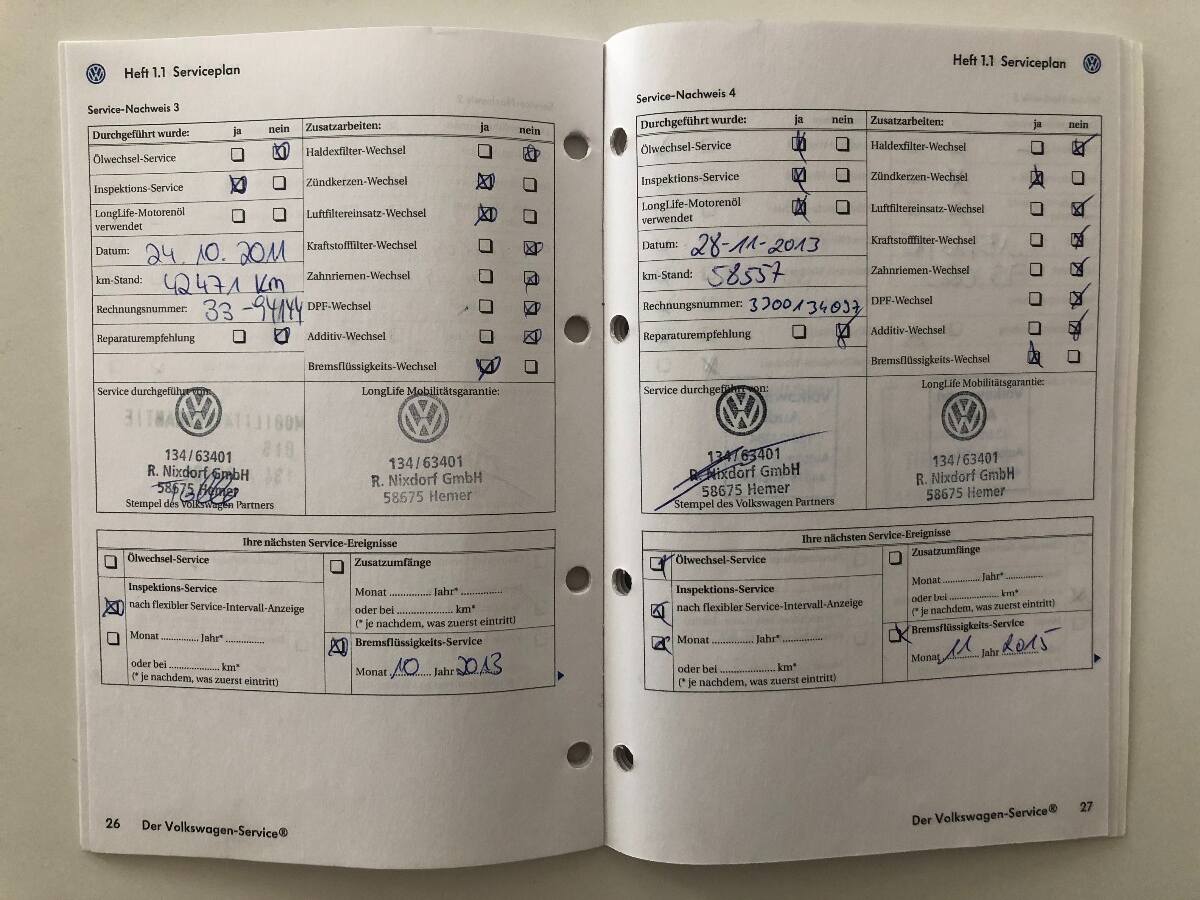 Heft 1.1 Serviceplan
Service-Nachweis 3
Durchgeführt wurde: ja nein Zusatzarbeiten: ja nein
Ölwechsel-Service Haldexfilter-Wechsel
Inspektions-Service Zündkerzen-Wechsel
LongLife-Motorenöl
verwendet Luftfiltereinsatz-Wechsel
Kraftstofffilter-Wechsel
Datum: 24.10.2011
Zahnriemen-Wechsel
km-Stand: 42471 km
Rechnungsnummer: 33-94144 DPF-Wechsel
Reparaturempfehlung Additiv-Wechsel
Bremsflüssigkeits-Wechsel
Service durchgeführt von: LongLife Mobilitätsgarantie:
134/63401 134/63401
R. Nixdorf GmbH R. Nixdorf GmbH
58675 Hemer 58675 Hemer
Stempel des Volkswagen Partners
Ihre nächsten Service-Ereignisse
Ölwechsel-Service Zusatzumfänge
Inspektions-Service
nach flexibler Service-Intervall-Anzeige
Monat ............. Jahr* .............
oder bei .................. km*
(* je nachdem, was zuerst eintritt)
Monat ............. Jahr* .............
oder bei .................. km*
(* je nachdem, was zuerst eintritt)
Bremsflüssigkeits-Service
Monat 10 Jahr 2013
26 Der Volkswagen-Service®
Heft 1.1 Serviceplan
Service-Nachweis 4
Durchgeführt wurde: ja nein Zusatzarbeiten: ja nein
Ölwechsel-Service Haldexfilter-Wechsel
Inspektions-Service Zündkerzen-Wechsel
LongLife-Motorenöl
verwendet Luftfiltereinsatz-Wechsel
Datum: 28-11-2013 Kraftstofffilter-Wechsel
km-Stand: 58557 Zahnriemen-Wechsel
Rechnungsnummer: DPF-Wechsel
Reparaturempfehlung Additiv-Wechsel
Bremsflüssigkeits-Wechsel
Service durchgeführt von: LongLife Mobilitätsgarantie:
134/63401 134/63401
R. Nixdorf GmbH R. Nixdorf GmbH
58675 Hemer 58675 Hemer
Stempel des Volkswagen Partners
Ihre nächsten Service-Ereignisse
Ölwechsel-Service Zusatzumfänge
Inspektions-Service
nach flexibler Service-Intervall-Anzeige
Monat ............. Jahr* .............
oder bei .................. km*
(* je nachdem, was zuerst eintritt)
Monat ............. Jahr* .............
oder bei .................. km*
(* je nachdem, was zuerst eintritt)
Bremsflüssigkeits-Service
Monat 11 Jahr 2015
Der Volkswagen-Service® 27